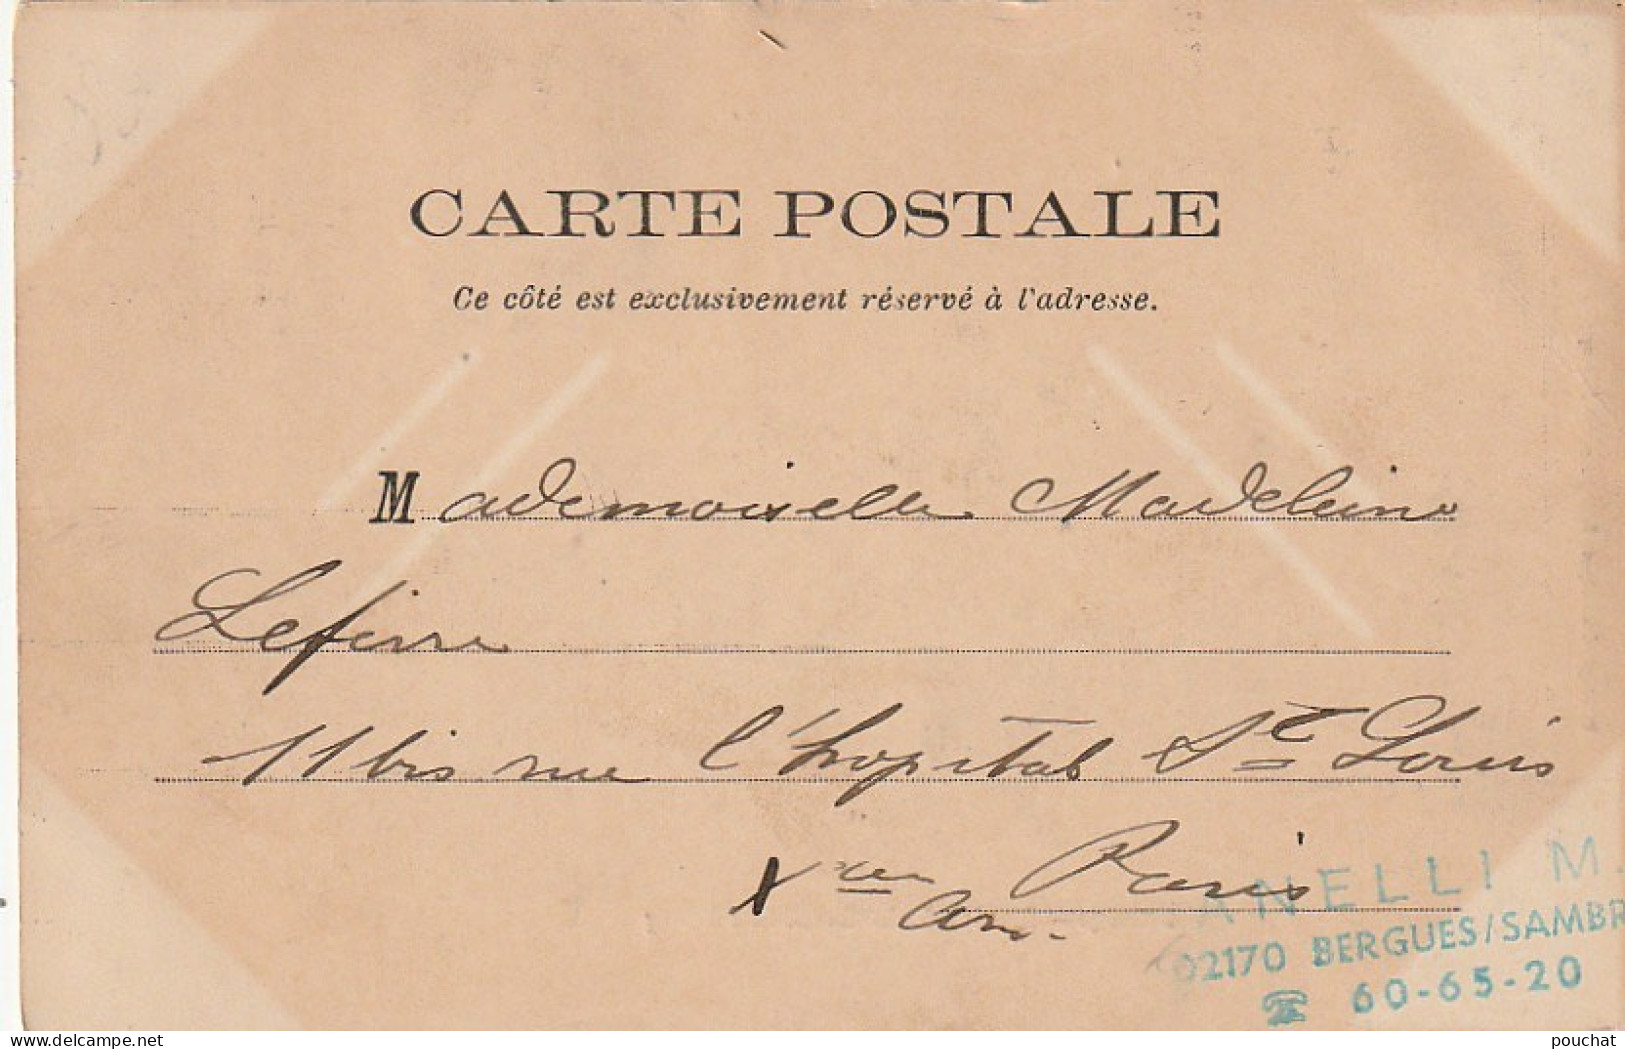 CARTE POSTALE
Ce côté est exclusivement réservé à l'adresse.
Mademoiselle Madeleine
Lefèvre
11 bis rue l'hopital St Louis
Paris
Xme Arr.
ANELLI M.
02170 BERGUES/SAMBR
☎ 60-65-20
www.delcampe.net
pouchat